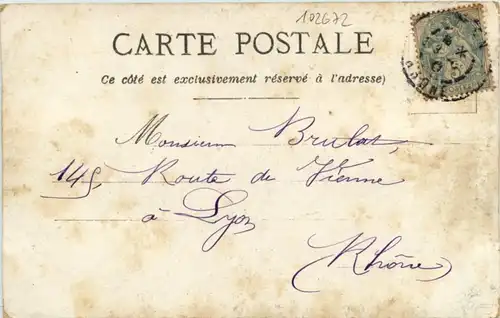 102672
CARTE POSTALE
Ce côté est exclusivement réservé à l'adresse)
Monsieur Brulat,
145, Route de Vienne
à Lyon
Rhône)